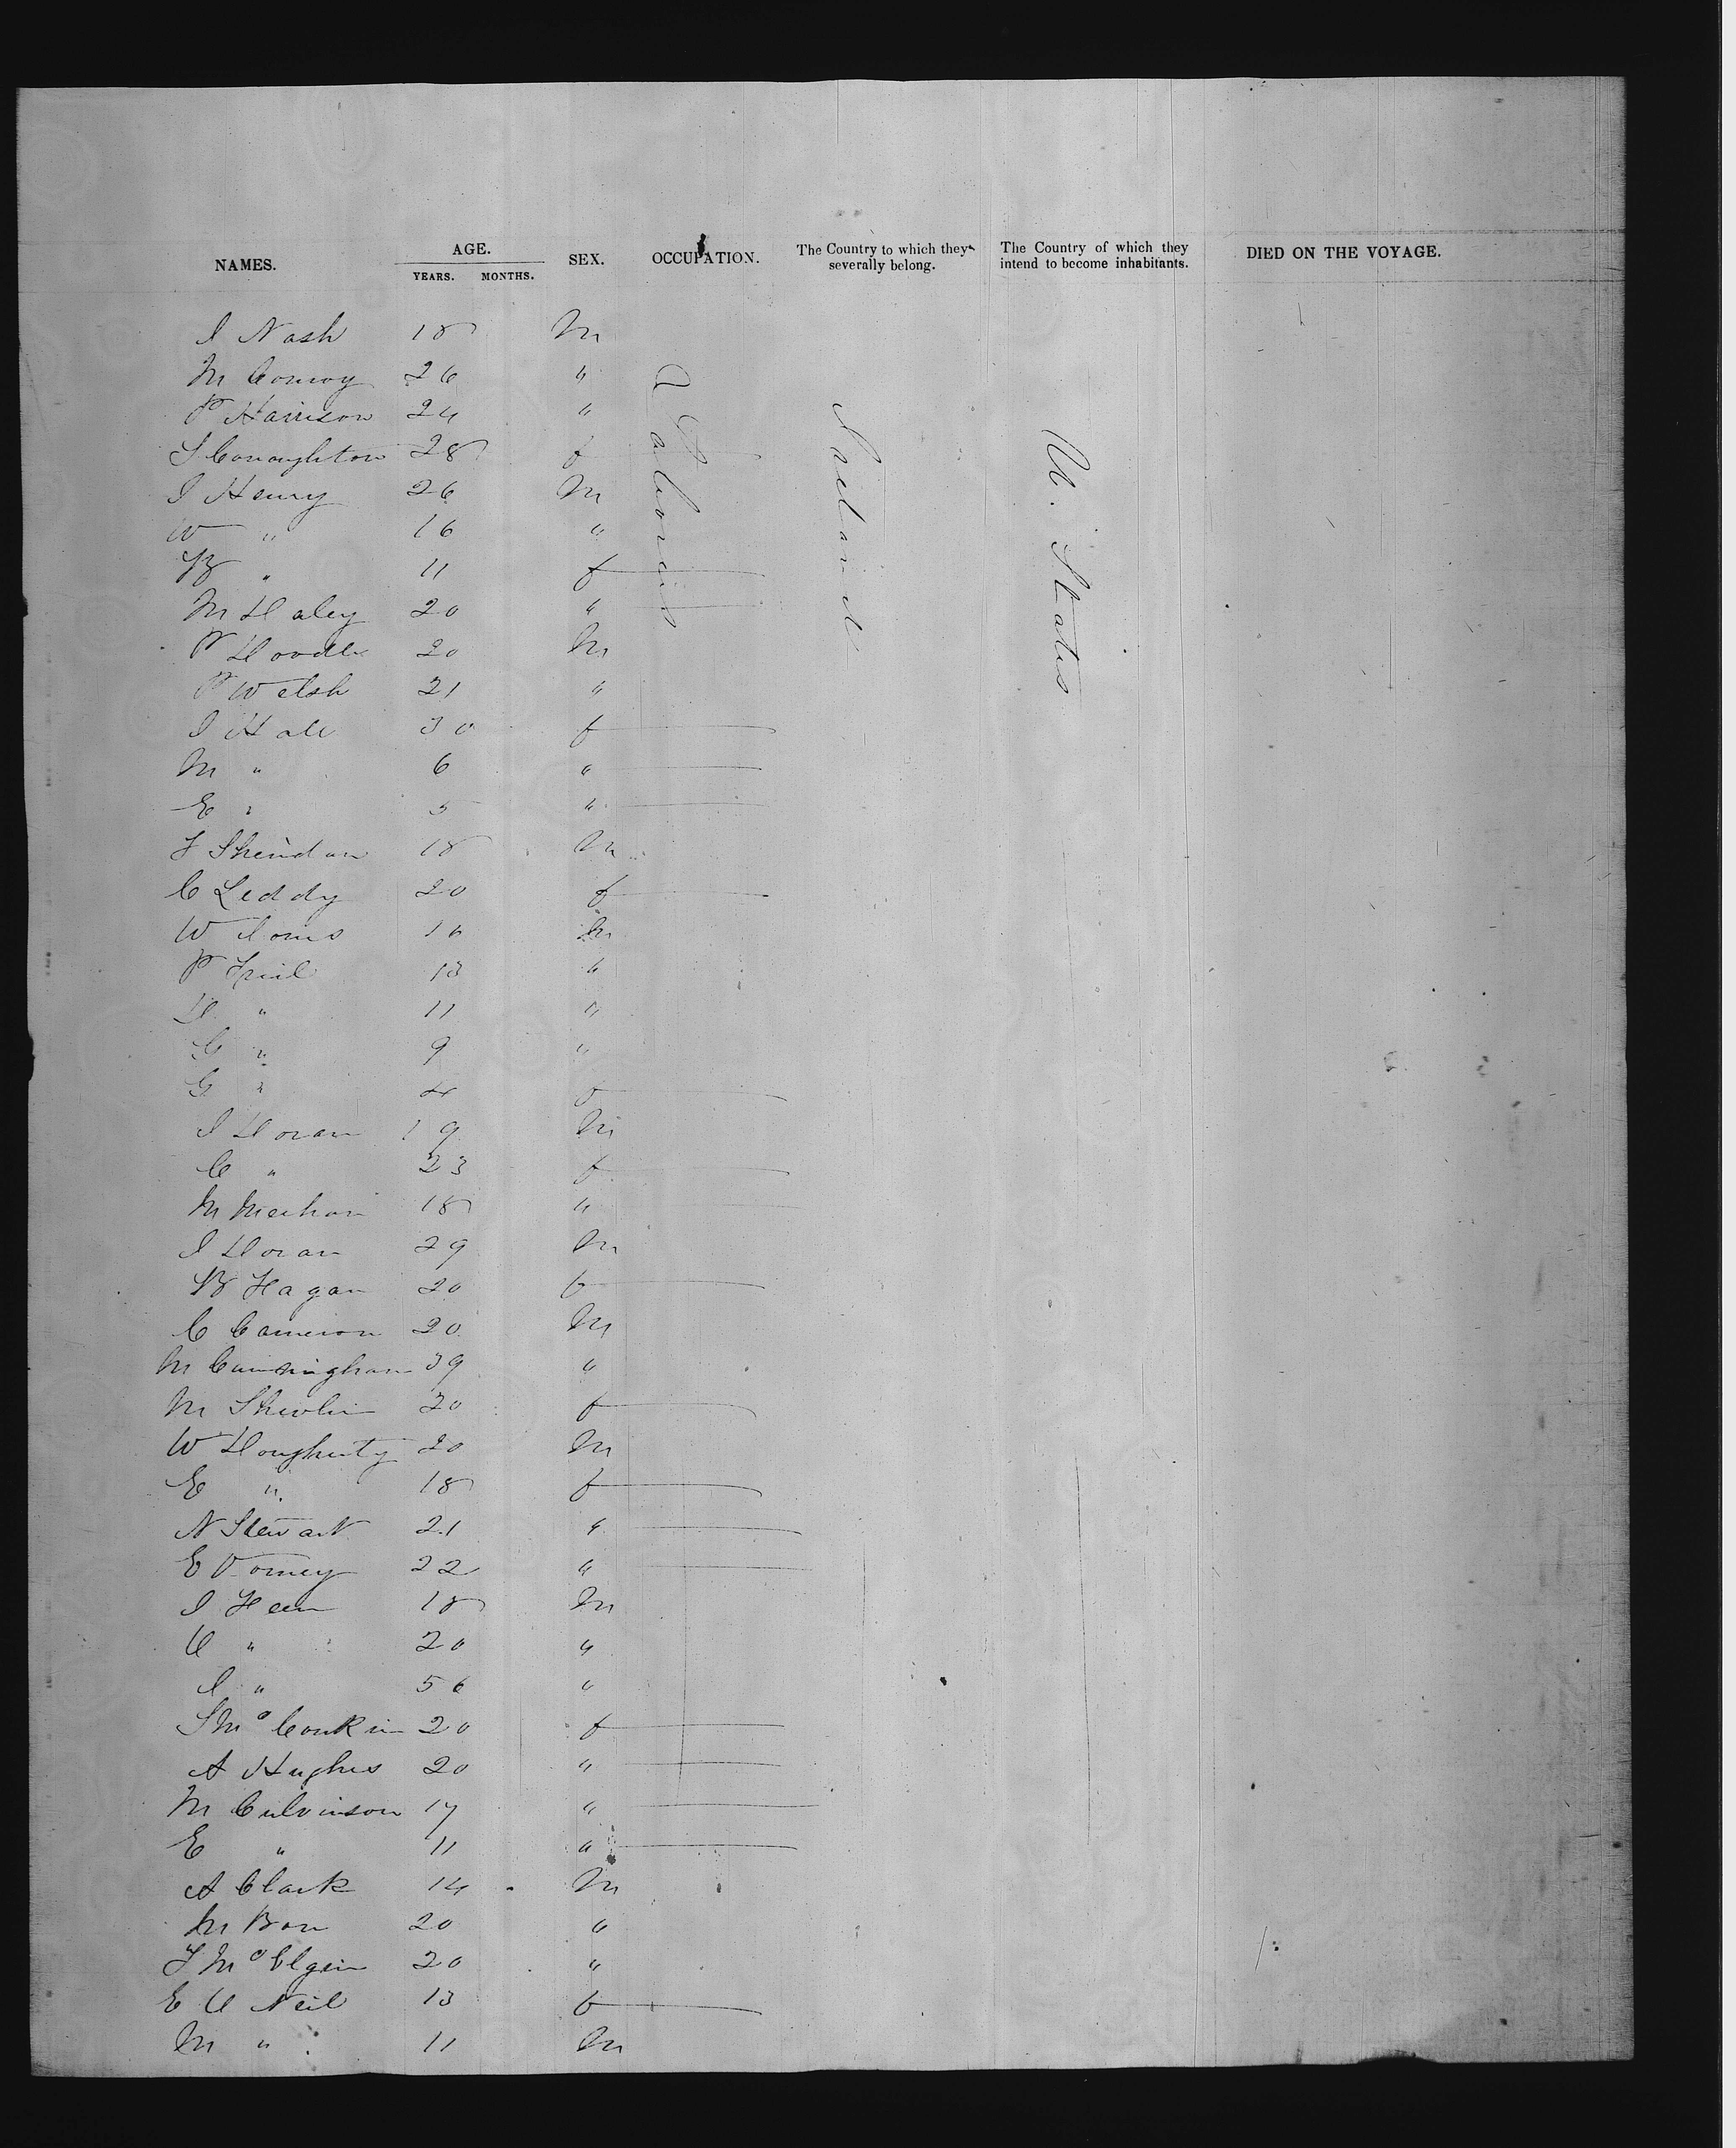 NAMES. AGE. YEARS. MONTHS. SEX. OCCUPATION. The Country to which they severally belong. The Country of which they intend to become inhabitants. DIED ON THE VOYAGE.
Laborers
Ireland
U. States
I Nash 18 M
M Conroy 26 "
P Harrison 24 "
S Conaughton 28 f
I Henry 26 M
W " 16 "
B " 11 f
M Daley 20 "
P 20 M
P Welsh 21 "
I Hale 30 f
M " 6 "
E " 5 "
F Sheridan 18 M
C Leddy 20 f
W 16 M
P Friil 13 "
D " 11 "
G " 9 "
G " 4 f
I Doran 19 M
C " 23 f
M Meehan 18 "
I Doran 29 M
B Hagan 20 f
C Cameron 20 M
M Cunningham 39 "
M Shevlin 20 f
W Dougherty 20 M
E " 18 f
N Stewart 21 "
E Torney 22 "
I 18 M
O " 20 "
I " 56 "
S Mc Conkin 20 f
A Hughes 20 "
M Culvinson 17 "
E " 11 "
A Clark 14 M
M 20 "
F Mc Elgin 20 "
E O Neil 13 f
M " 11 M